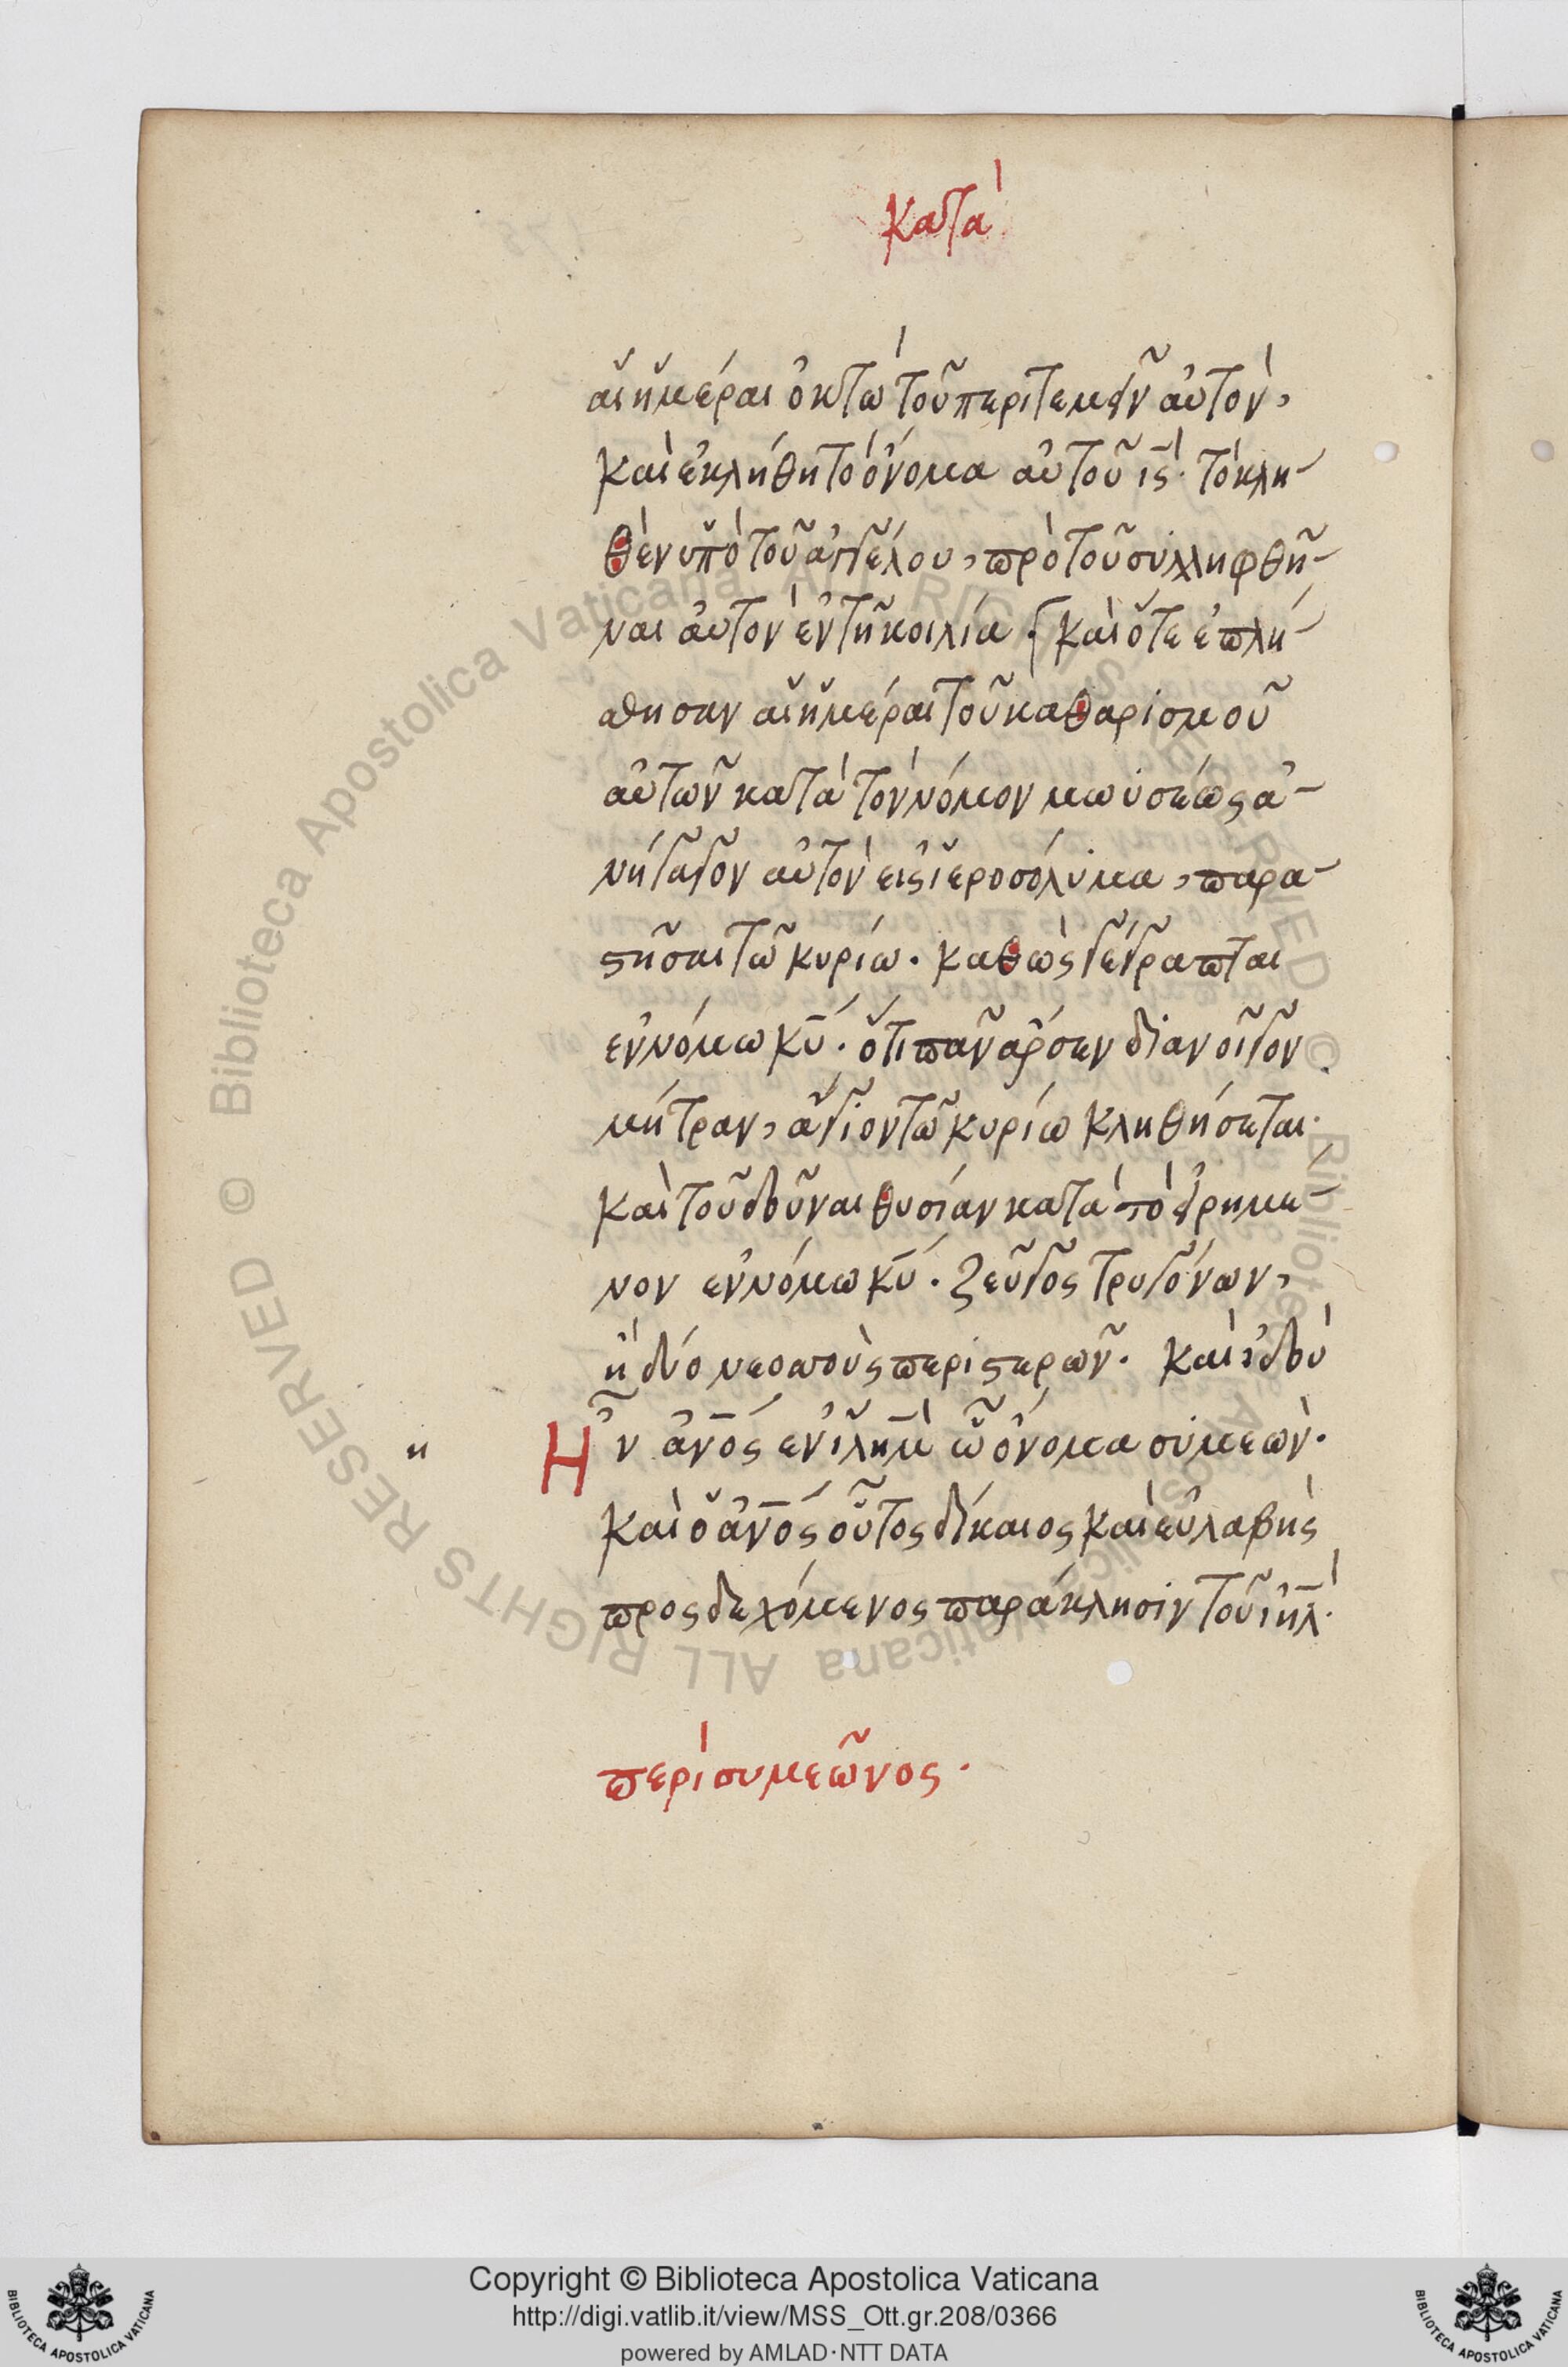 κατὰ
αἱ ἡμέραι ὀκτὼ τοῦ περιτεμεῖν αὐτὸν,
καὶ ἐκλήθη τὸ ὄνομα αὐτοῦ ις̅· τὸ κλη-
θὲν ὑπὸ τοῦ ἀγγέλου, πρὸ τοῦ συλληφθῆ-
ναι αὐτὸν ἐν τῆ κοιλία · καὶ ὅτε ἐπλή-
σθησαν αἱ ἡμέραι τοῦ καθαρισμοῦ
αὐτῶν κατὰ τὸν νόμον μωϋσέως ἀ-
νήγαγον αὐτὸν εἰς ἱεροσόλυμα, παρα-
στῆσαι τῶ κυρίω · καθὼς γέγραπται
ἐν νόμω κυ̅ · ὅτι πᾶν ἄρσεν διανοῖγον
μήτραν, ἅγιον τῶ κυρίω κληθήσεται·
καὶ τοῦ δοῦναι θυσίαν κατὰ τὸ εἰρημέ-
νον ἐν νόμω κυ̅ · ζεῦγος τρυγόνων,
ἢ δύο νεοσσοὺς περιστερῶν · καὶ ἰδοὺ
η
Ἦν ἀν̅ος ἐν ιλη̅μ ὧ ὄνομα συμεὼν·
καὶ ὁ ἀν̅ος οὗτος δίκαιος καὶ εὐλαβὴς
προςδεχόμενος παράκλησιν τοῦ ιη̅λ·
περὶ συμεῶνος ·
Copyright © Biblioteca Apostolica Vaticana
http://digi.vatlib.it/view/MSS_Ott.gr.208/0366
powered by AMLAD·NTT DATA
BIBLIOTECA APOSTOLICA VATICANA
BIBLIOTECA APOSTOLICA VATICANA
© Biblioteca Apostolica Vaticana ALL RIGHTS RESERVED © Biblioteca Apostolica Vaticana ALL RIGHTS RESERVED